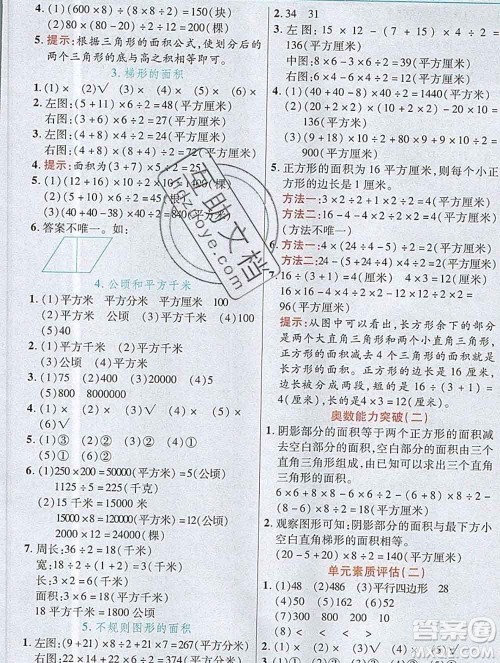 4. (1)(600×8)÷(8×4)=150(块)
(2)(80×20)×8÷2÷80=150(棵)
5. 提示:根据三角形的面积公式,使划分后的
两个三角形的底与高之积相等即可。
3. 梯形的面积
1. (1)(2)√ (3)√ (4)× (5)× (6)×
2. 左图:(5+11)×6÷2=48(平方厘米)
右图:(2+4)×9÷2=27(平方厘米)
3. 左图:(4+8)×4÷2=24(平方厘米)
右图:(4+8)×12÷2=72(平方厘米)
4. 提示:面积为(3+7)×5÷2=25
5. (1)(12+16)×10÷2=140
(2)(10+20)×12÷2=180
(3)(40-40÷2)×40÷2=
6. 答案不唯一。如:
4. 公顷和平方千米
1. (1)平方米 平方分米 平方厘米 100
(2)公顷 (3)公顷 (4)平方千米
(5)平方千米
2. (1)35 (2)400000 (3)20 (4)40
(5)8000000
3. (1)平方米 (2)公顷 (3)平方千米
4. (1)× (2)√ (3)× (4)√ (5)×
(6)×
5. (1)③ (2)② (3)① (4)② (5)①
6. (1)250×200=50000(平方米)=5(公顷)
1125÷5=225(千克)
(2)15千米=15000米
15000×8=12000(平方米)=12(公顷)
2000×12=24000(棵)
7. 周长:36÷2=18(千米)
宽:18÷(5+1)=3(千米)
面积:3×6=18(平方千米)
18平方千米=1800公顷
5. 不规则图形的面积
1. 左图:(9+21)×8÷2+21×
2. 34 31
136(平方厘米)
中图:8×6-4×3÷2=42(平方厘米)
右图:
136(平方厘米)
4. (1)(20+52)×40÷2=1440(平方厘米)
(2)24×20-8×9=408(平方厘米)
(3)80×9÷2+(80+9+9)×9÷2=
801(平方厘米)
5. 正方形的面积为16平方厘米,则每个小正
方形的边长是4厘米。
方法一:
方法二:16-4-4×2÷2=8(平方厘米)
(方法不唯一)
6. 方法一:4×(24÷4-5)÷2=2(平方厘米)
方法二:24-(5+6)×4÷2=2(平方厘米)
7.
96(平方厘米)
提示:从图中可以看出,长方形余下的部分
是两个大直角三角形和两个小直角三角形,
正方形的面积减去4个三角形的面积就是
所求的面积。正方形的边长是16厘米,长
方形的宽是正方形边长的一部分,长度是
16÷(3+1)=4(厘米),正方形边长的另一
部分长度是16-4=12(厘米)。
奥数能力突破(二)
1. 阴影部分的面积等于两个正方形的面积减
去空白部分的面积,空白部分的面积是三个
直角三角形组成的。求出这三个直角三角
形的面积即可。
6×6+8×8-6×6÷2-(6+8)×8÷2-
(8-6)×6÷2=20(平方厘米)
2. 观察图形可知:阴影部分的面积与最下方小
空白直角梯形的面积相等。
(20-5+20)×8÷2=140(平方厘米)
单元素质评估(二)
1. (1)48 (2)486 (3)平行四边形 48
(4)50 (5)40 (6)27 (7)20 24
(8)600000 1200 500 7